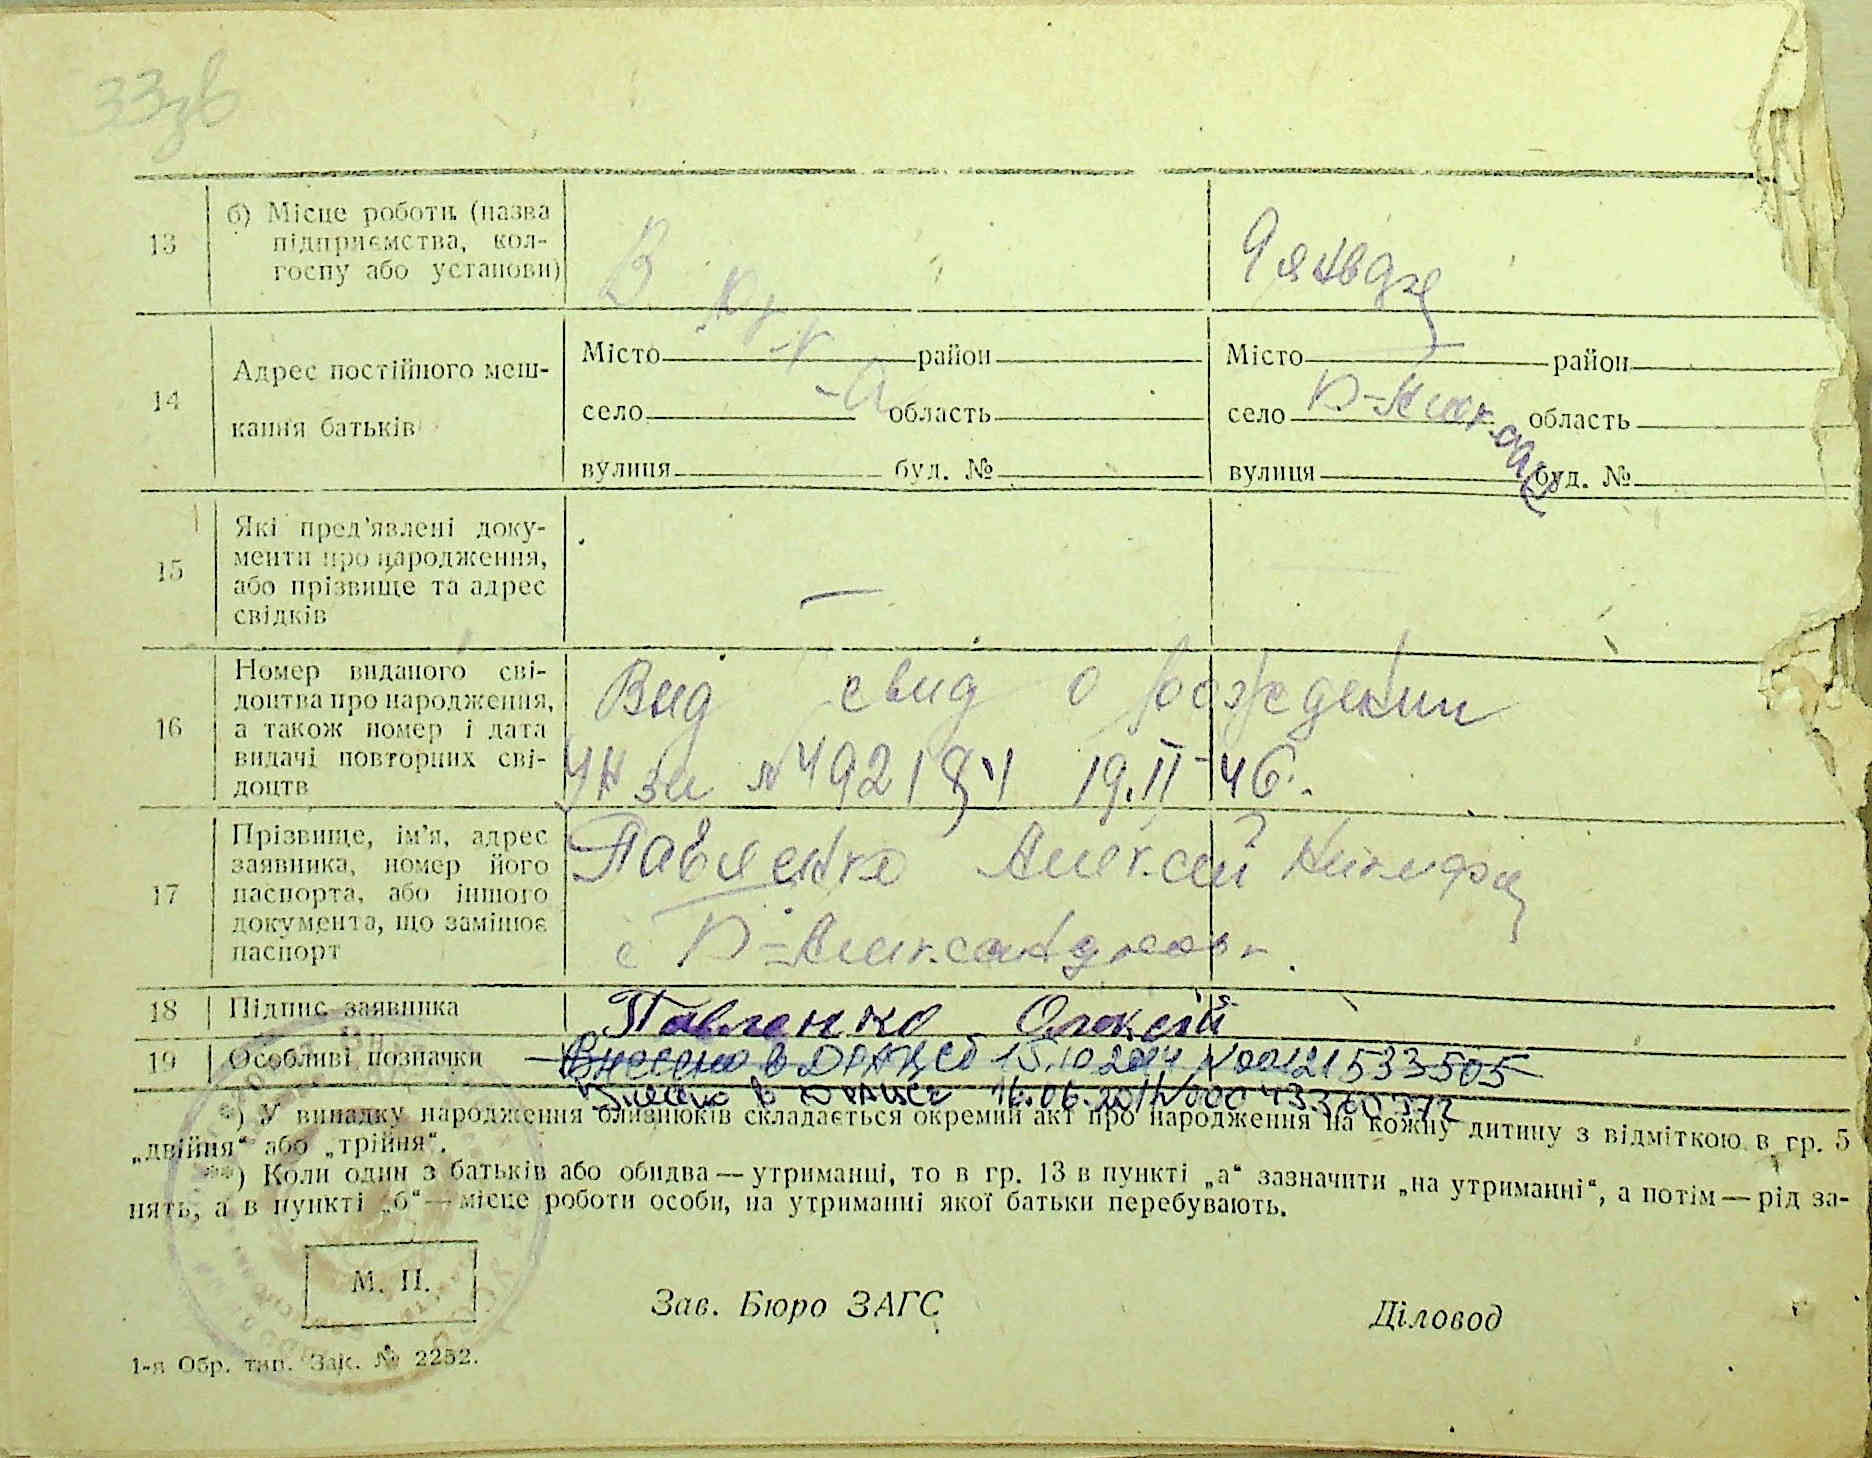 33зв
13 б) Місце роботи (назва підприємства, колгоспу або установи)
В
14 Адрес постійного мешкання батьків
Місто район Місто район
село область село область
вулиця буд. № вулиця буд. №
15 Які пред'явлені документи про народження, або прізвище та адрес свідків
—
16 Номер виданого свідоцтва про народження, а також номер і дата видачі повторних свідоцтв
Выд свид о рождении
УН за № 492181 19.II-46.
17 Прізвище, ім'я, адрес заявника, номер його паспорта, або іншого документа, що замінює паспорт
Павленко Алексей Никифор
с П-Александровк.
18 Підпис заявника Павленко Олексій
19 Особливі позначки Внесено в ДРАЦСг 15.10.2014 N00121533505
Внесено в ДРАЦСг 16.06.2011
*) У випадку народження близнюків складається окремий акт про народження на кожну дитину з відміткою в гр. 5
„двійня“ або „трійня“.
**) Коли один з батьків або обидва — утриманці, то в гр. 13 в пункті „а“ зазначити „на утриманні“, а потім — рід за-
нять, а в пункті „б“ — місце роботи особи, на утриманні якої батьки перебувають.
М. П.
Зав. Бюро ЗАГС Діловод
1-я Обр. тип. Зак. № 2252.